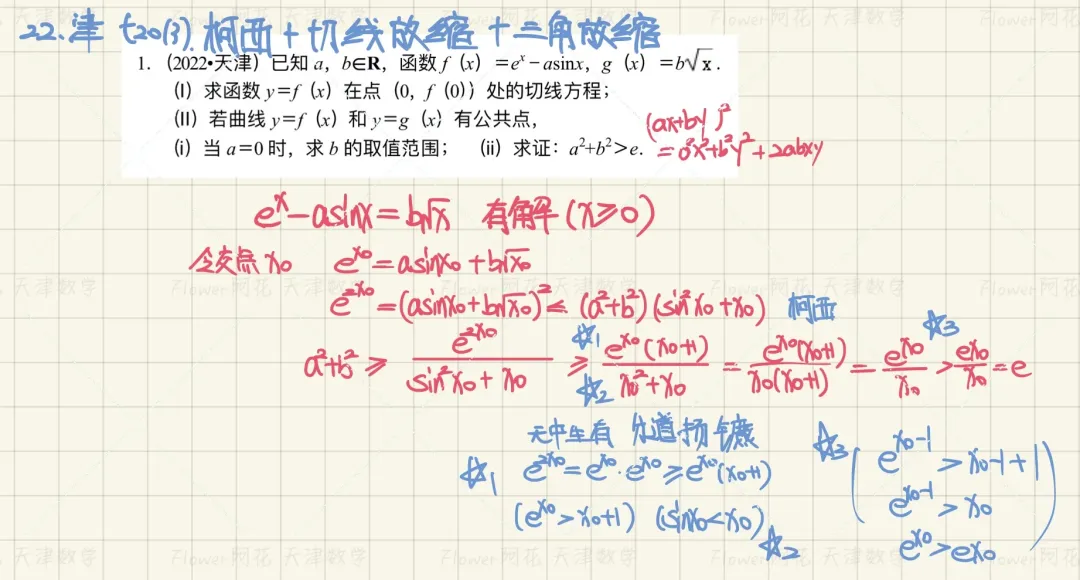 22.津 t20(3).柯西+切线放缩+三角放缩
1.（2022•天津）已知 a，b∈R，函数 f（x）=eˣ－asinx，g（x）=b√x．
（I）求函数 y=f（x）在点（0，f（0））处的切线方程；
（II）若曲线 y=f（x）和 y=g（x）有公共点，
（i）当 a=0 时，求 b 的取值范围；（ii）求证：a²+b²>e．
(ax+by)²
=a²x²+b²y²+2abxy
eˣ－asinx=b√x 有解(x≥0)
令交点 x₀ e^x₀=asinx₀+b√x₀
e^2x₀=(asinx₀+b√x₀)²≤(a²+b²)(sin²x₀+x₀) 柯西
a²+b²≥ e^2x₀/(sin²x₀+x₀) ≥ e^x₀(x₀+1)/(x₀²+x₀) = e^x₀(x₀+1)/(x₀(x₀+1)) = e^x₀/x₀ > ex₀/x₀ = e
☆1 ☆2 ☆3
无中生有 分道扬镳
☆1 e^2x₀=e^x₀·e^x₀≥e^x₀(x₀+1)
(e^x₀>x₀+1) (sinx₀<x₀) ☆2
☆3 (e^(x₀-1)>x₀-1+1
e^(x₀-1)>x₀
e^x₀>ex₀)
Flower阿花 天津数学
Flower阿花 天津数学
Flower阿花 天津数学